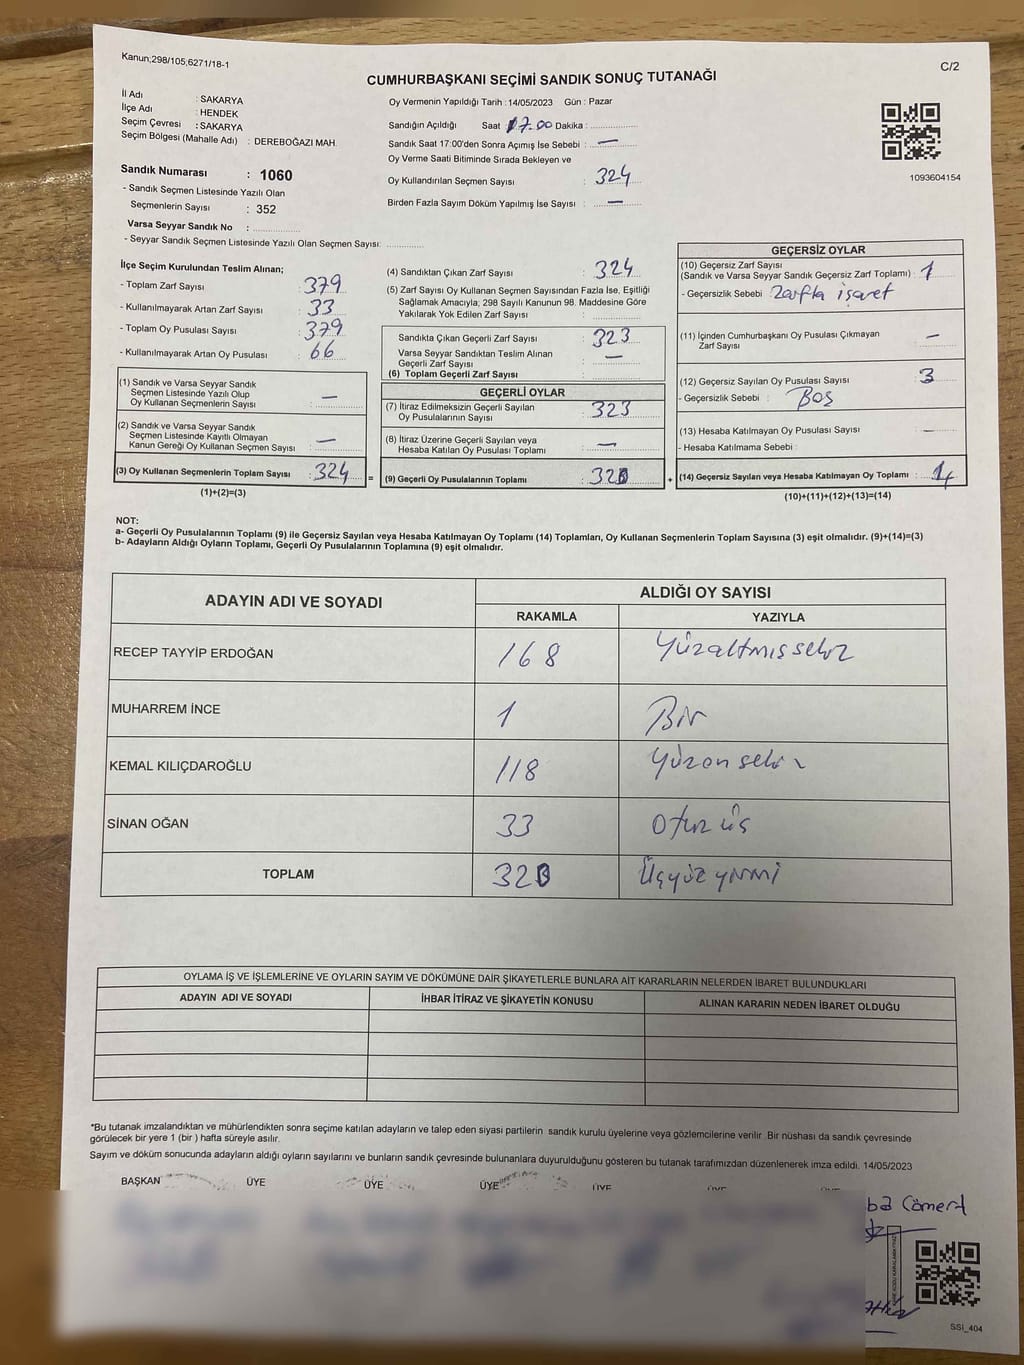 Kanun;298/105;6271/18-1
C/2
CUMHURBAŞKANI SEÇİMİ SANDIK SONUÇ TUTANAĞI
İl Adı : SAKARYA
İlçe Adı : HENDEK
Seçim Çevresi : SAKARYA
Seçim Bölgesi (Mahalle Adı) : DEREBOĞAZI MAH.
Sandık Numarası : 1060
- Sandık Seçmen Listesinde Yazılı Olan
Seçmenlerin Sayısı : 352
Varsa Seyyar Sandık No :
- Seyyar Sandık Seçmen Listesinde Yazılı Olan Seçmen Sayısı:
Oy Vermenin Yapıldığı Tarih : 14/05/2023 Gün : Pazar
Sandığın Açıldığı Saat 17.00 Dakika :
Sandık Saat 17:00'den Sonra Açımış İse Sebebi : —
Oy Verme Saati Bitiminde Sırada Bekleyen ve
Oy Kullandırılan Seçmen Sayısı : 324
Birden Fazla Sayım Döküm Yapılmış İse Sayısı : —
1093604154
İlçe Seçim Kurulundan Teslim Alınan;
- Toplam Zarf Sayısı : 379
- Kullanılmayarak Artan Zarf Sayısı : 33
- Toplam Oy Pusulası Sayısı : 379
- Kullanılmayarak Artan Oy Pusulası : 66
(1) Sandık ve Varsa Seyyar Sandık
Seçmen Listesinde Yazılı Olup
Oy Kullanan Seçmenlerin Sayısı : —
(2) Sandık ve Varsa Seyyar Sandık
Seçmen Listesinde Kayıtlı Olmayan
Kanun Gereği Oy Kullanan Seçmen Sayısı : —
(3) Oy Kullanan Seçmenlerin Toplam Sayısı : 324
(1)+(2)=(3)
(4) Sandıktan Çıkan Zarf Sayısı : 324
(5) Zarf Sayısı Oy Kullanan Seçmen Sayısından Fazla İse, Eşitliği
Sağlamak Amacıyla; 298 Sayılı Kanunun 98. Maddesine Göre
Yakılarak Yok Edilen Zarf Sayısı :
Sandıkta Çıkan Geçerli Zarf Sayısı : 323
Varsa Seyyar Sandıktan Teslim Alınan
Geçerli Zarf Sayısı : —
(6) Toplam Geçerli Zarf Sayısı :
GEÇERLİ OYLAR
(7) İtiraz Edilmeksizin Geçerli Sayılan
Oy Pusulalarının Sayısı : 323
(8) İtiraz Üzerine Geçerli Sayılan veya
Hesaba Katılan Oy Pusulası Toplamı : —
= (9) Geçerli Oy Pusulalarının Toplamı : 320
GEÇERSİZ OYLAR
(10) Geçersiz Zarf Sayısı
(Sandık ve Varsa Seyyar Sandık Geçersiz Zarf Toplamı) : 1
- Geçersizlik Sebebi : Zarfta işaret
(11) İçinden Cumhurbaşkanı Oy Pusulası Çıkmayan
Zarf Sayısı : —
(12) Geçersiz Sayılan Oy Pusulası Sayısı : 3
- Geçersizlik Sebebi : Boş
(13) Hesaba Katılmayan Oy Pusulası Sayısı : —
- Hesaba Katılmama Sebebi :
+ (14) Geçersiz Sayılan veya Hesaba Katılmayan Oy Toplamı : 4
(10)+(11)+(12)+(13)=(14)
NOT:
a- Geçerli Oy Pusulalarının Toplamı (9) ile Geçersiz Sayılan veya Hesaba Katılmayan Oy Toplamı (14) Toplamları, Oy Kullanan Seçmenlerin Toplam Sayısına (3) eşit olmalıdır. (9)+(14)=(3)
b- Adayların Aldığı Oyların Toplamı, Geçerli Oy Pusulalarının Toplamına (9) eşit olmalıdır.
ADAYIN ADI VE SOYADI ALDIĞI OY SAYISI
RAKAMLA YAZIYLA
RECEP TAYYİP ERDOĞAN 168 Yüzaltmışsekiz
MUHARREM İNCE 1 Bir
KEMAL KILIÇDAROĞLU 118 Yüzonsekiz
SİNAN OĞAN 33 Otuz üç
TOPLAM 320 Üçyüz yirmi
OYLAMA İŞ VE İŞLEMLERİNE VE OYLARIN SAYIM VE DÖKÜMÜNE DAİR ŞİKAYETLERLE BUNLARA AİT KARARLARIN NELERDEN İBARET BULUNDUKLARI
ADAYIN ADI VE SOYADI İHBAR İTİRAZ VE ŞİKAYETİN KONUSU ALINAN KARARIN NEDEN İBARET OLDUĞU
*Bu tutanak imzalandıktan ve mühürlendikten sonra seçime katılan adayların ve talep eden siyasi partilerin sandık kurulu üyelerine veya gözlemcilerine verilir. Bir nüshası da sandık çevresinde
görülecek bir yere 1 (bir ) hafta süreyle asılır.
Sayım ve döküm sonucunda adayların aldığı oyların sayılarını ve bunların sandık çevresinde bulunanlara duyurulduğunu gösteren bu tutanak tarafımızdan düzenlenerek imza edildi. 14/05/2023
BAŞKAN ÜYE ÜYE ÜYE ÜYE
Cömert
SSİ_404